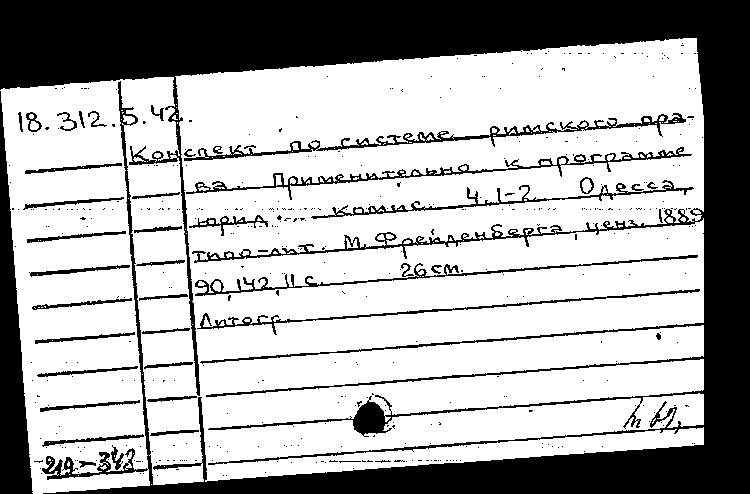 18.312.5.42.
Конспект по системе римского пра-
ва. Применительно к программе
юрид. комис. Ч.1-2. Одесса,
типо-лит. М. Фрейденберга, ценз. 1889
90,142,II с. 26 см.
Литогр.
219-348